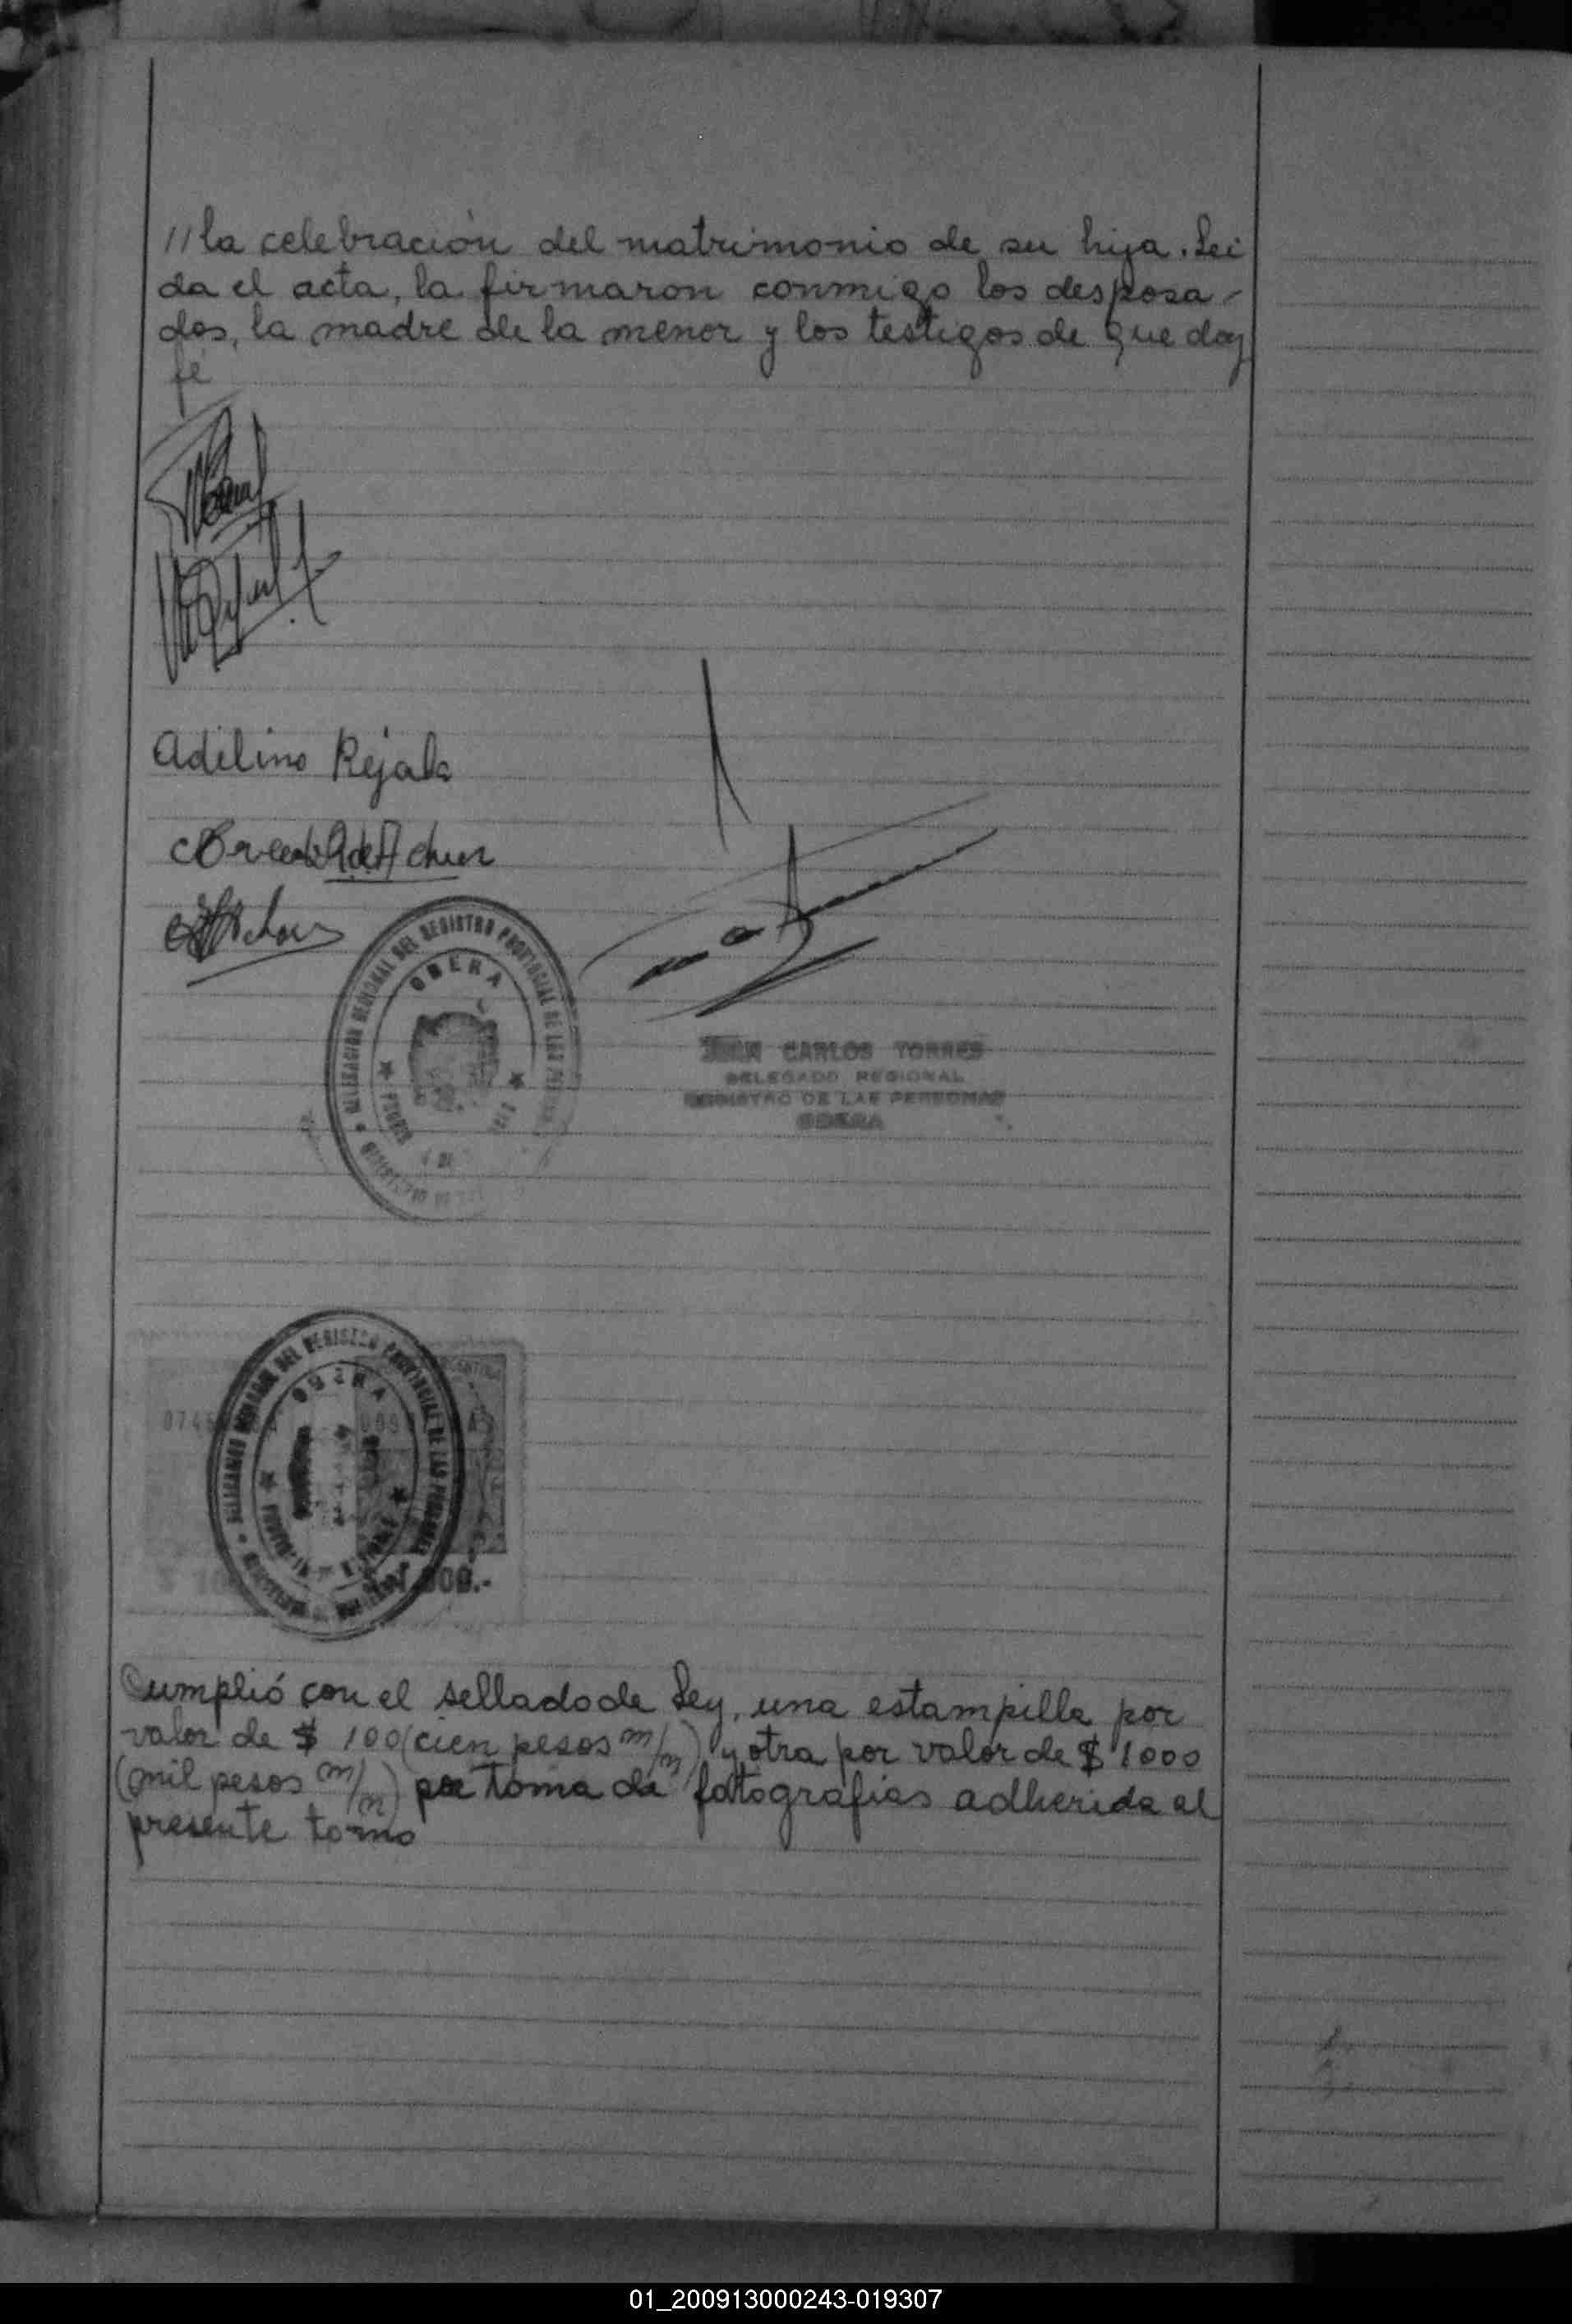 //la celebración del matrimonio de su hija. Lei
da el acta, la firmaron conmigo los desposa-
dos, la madre de la menor y los testigos de que doy
fé
Adelino Rejala
DELEGACION REGIONAL DEL REGISTRO PROVINCIAL DE LAS
OBERA
CARLOS TORRES
DELEGADO REGIONAL
REGISTRO DE LAS PERSONAS
OBERA
DELEGACION REGIONAL DEL REGISTRO PROVINCIAL DE LAS PERSONAS
OBERA
Cumplió con el sellado de Ley, una estampilla por
valor de $ 100 (cien pesos m/n) y otra por valor de $ 1000
(mil pesos m/n) por toma de fotografias adherida al
presente tomo
01_200913000243-019307